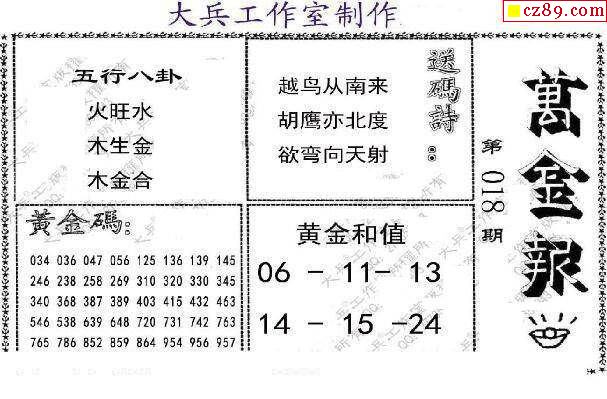 大兵工作室制作
cz89.com
五行八卦
火旺水
木生金
木金合
送碼詩：
越鸟从南来
胡鹰亦北度
欲弯向天射
萬金報
第018期
黃金碼：
034 036 047 056 125 136 139 145
246 238 258 269 310 320 330 345
340 368 387 389 403 415 432 463
546 538 639 648 720 731 742 763
765 786 852 859 864 954 956 957
黄金和值
06 - 11- 13
14 - 15 -24